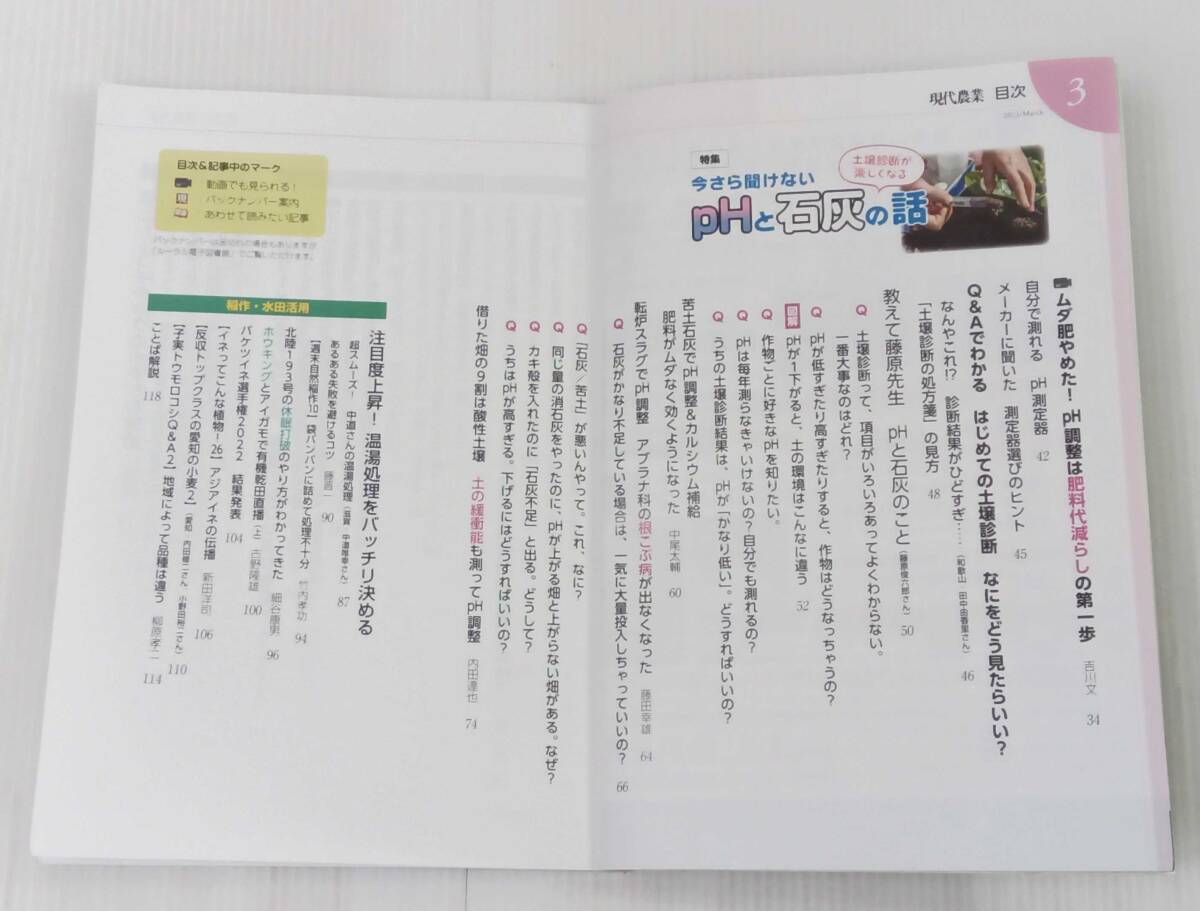 3
現代農業 目次
2023/March
特集
土壌診断が
楽しくなる
今さら聞けない
pHと石灰の話
ムダ肥やめた! pH調整は肥料代減らしの第一歩 吉川文 34
自分で測れる pH測定器 42
メーカーに聞いた 測定器選びのヒント 45
Q&Aでわかる はじめての土壌診断 なにをどう見たらいい?
なんやこれ!? 診断結果がひどすぎ…… (和歌山 田中由香里さん) 46
「土壌診断の処方箋」の見方 48
教えて藤原先生 pHと石灰のこと (藤原俊六郎さん) 50
Q 土壌診断って、項目がいろいろあってよくわからない。
一番大事なのはどれ?
Q pHが低すぎたり高すぎたりすると、作物はどうなっちゃうの?
図解 pHが1下がると、土の環境はこんなに違う 52
Q 作物ごとに好きなpHを知りたい。
Q pHは毎年測らなきゃいけないの?自分でも測れるの?
Q うちの土壌診断結果は、pHが「かなり低い」。どうすればいいの?
苦土石灰でpH調整&カルシウム補給
肥料がムダなく効くようになった 中尾太輔 60
転炉スラグでpH調整 アブラナ科の根こぶ病が出なくなった 藤田幸雄 64
Q 石灰がかなり不足している場合は、一気に大量投入しちゃっていいの? 66
Q 「石灰/苦土」が悪いんやって。これ、なに?
Q 同じ量の消石灰をやったのに、pHが上がる畑と上がらない畑がある。なぜ?
Q カキ殻を入れたのに「石灰不足」と出る。どうして?
Q うちはpHが高すぎる。下げるにはどうすればいいの?
借りた畑の9割は酸性土壌 土の緩衝能も測ってpH調整 内田達也 74
目次&記事中のマーク
動画でも見られる!
現 バックナンバー案内
あわせて読みたい記事
バックナンバーは品切れの場合もありますが
「ルーラル電子図書館」でご覧いただけます。
稲作・水田活用
注目度上昇! 温湯処理をバッチリ決める
超スムーズ! 中道さんの温湯処理 (滋賀 中道唯幸さん) 87
あるある失敗を避けるコツ 藤晋一 90
【週末自然稲作10】袋パンパンに詰めて処理不十分 竹内孝功 94
北陸193号の休眠打破のやり方がわかってきた 細谷康男 96
ホウキングとアイガモで有機乾田直播(上) 古野隆雄 100
バケツイネ選手権2022 結果発表 104
【イネってこんな植物!26】アジアイネの伝播 新田洋司 106
【反収トップクラスの愛知の小麦2】 (愛知 内田健二さん、小野田裕二さん) 110
【子実トウモロコシQ&A2】地域によって品種は違う 柳原孝二 114
ことば解説 118